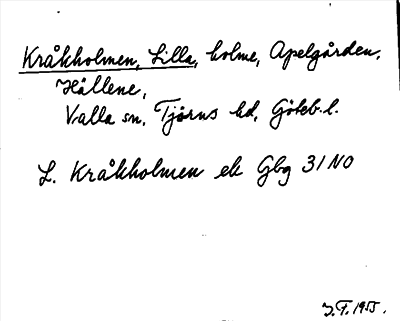 Kråkholmen, Lilla, holme, Apelgården,
Hällene,
Valla sn, Tjörns hd, Göteb. l.
L. Kråkholmen ek Gbg 31 NO
J.F. 1955.